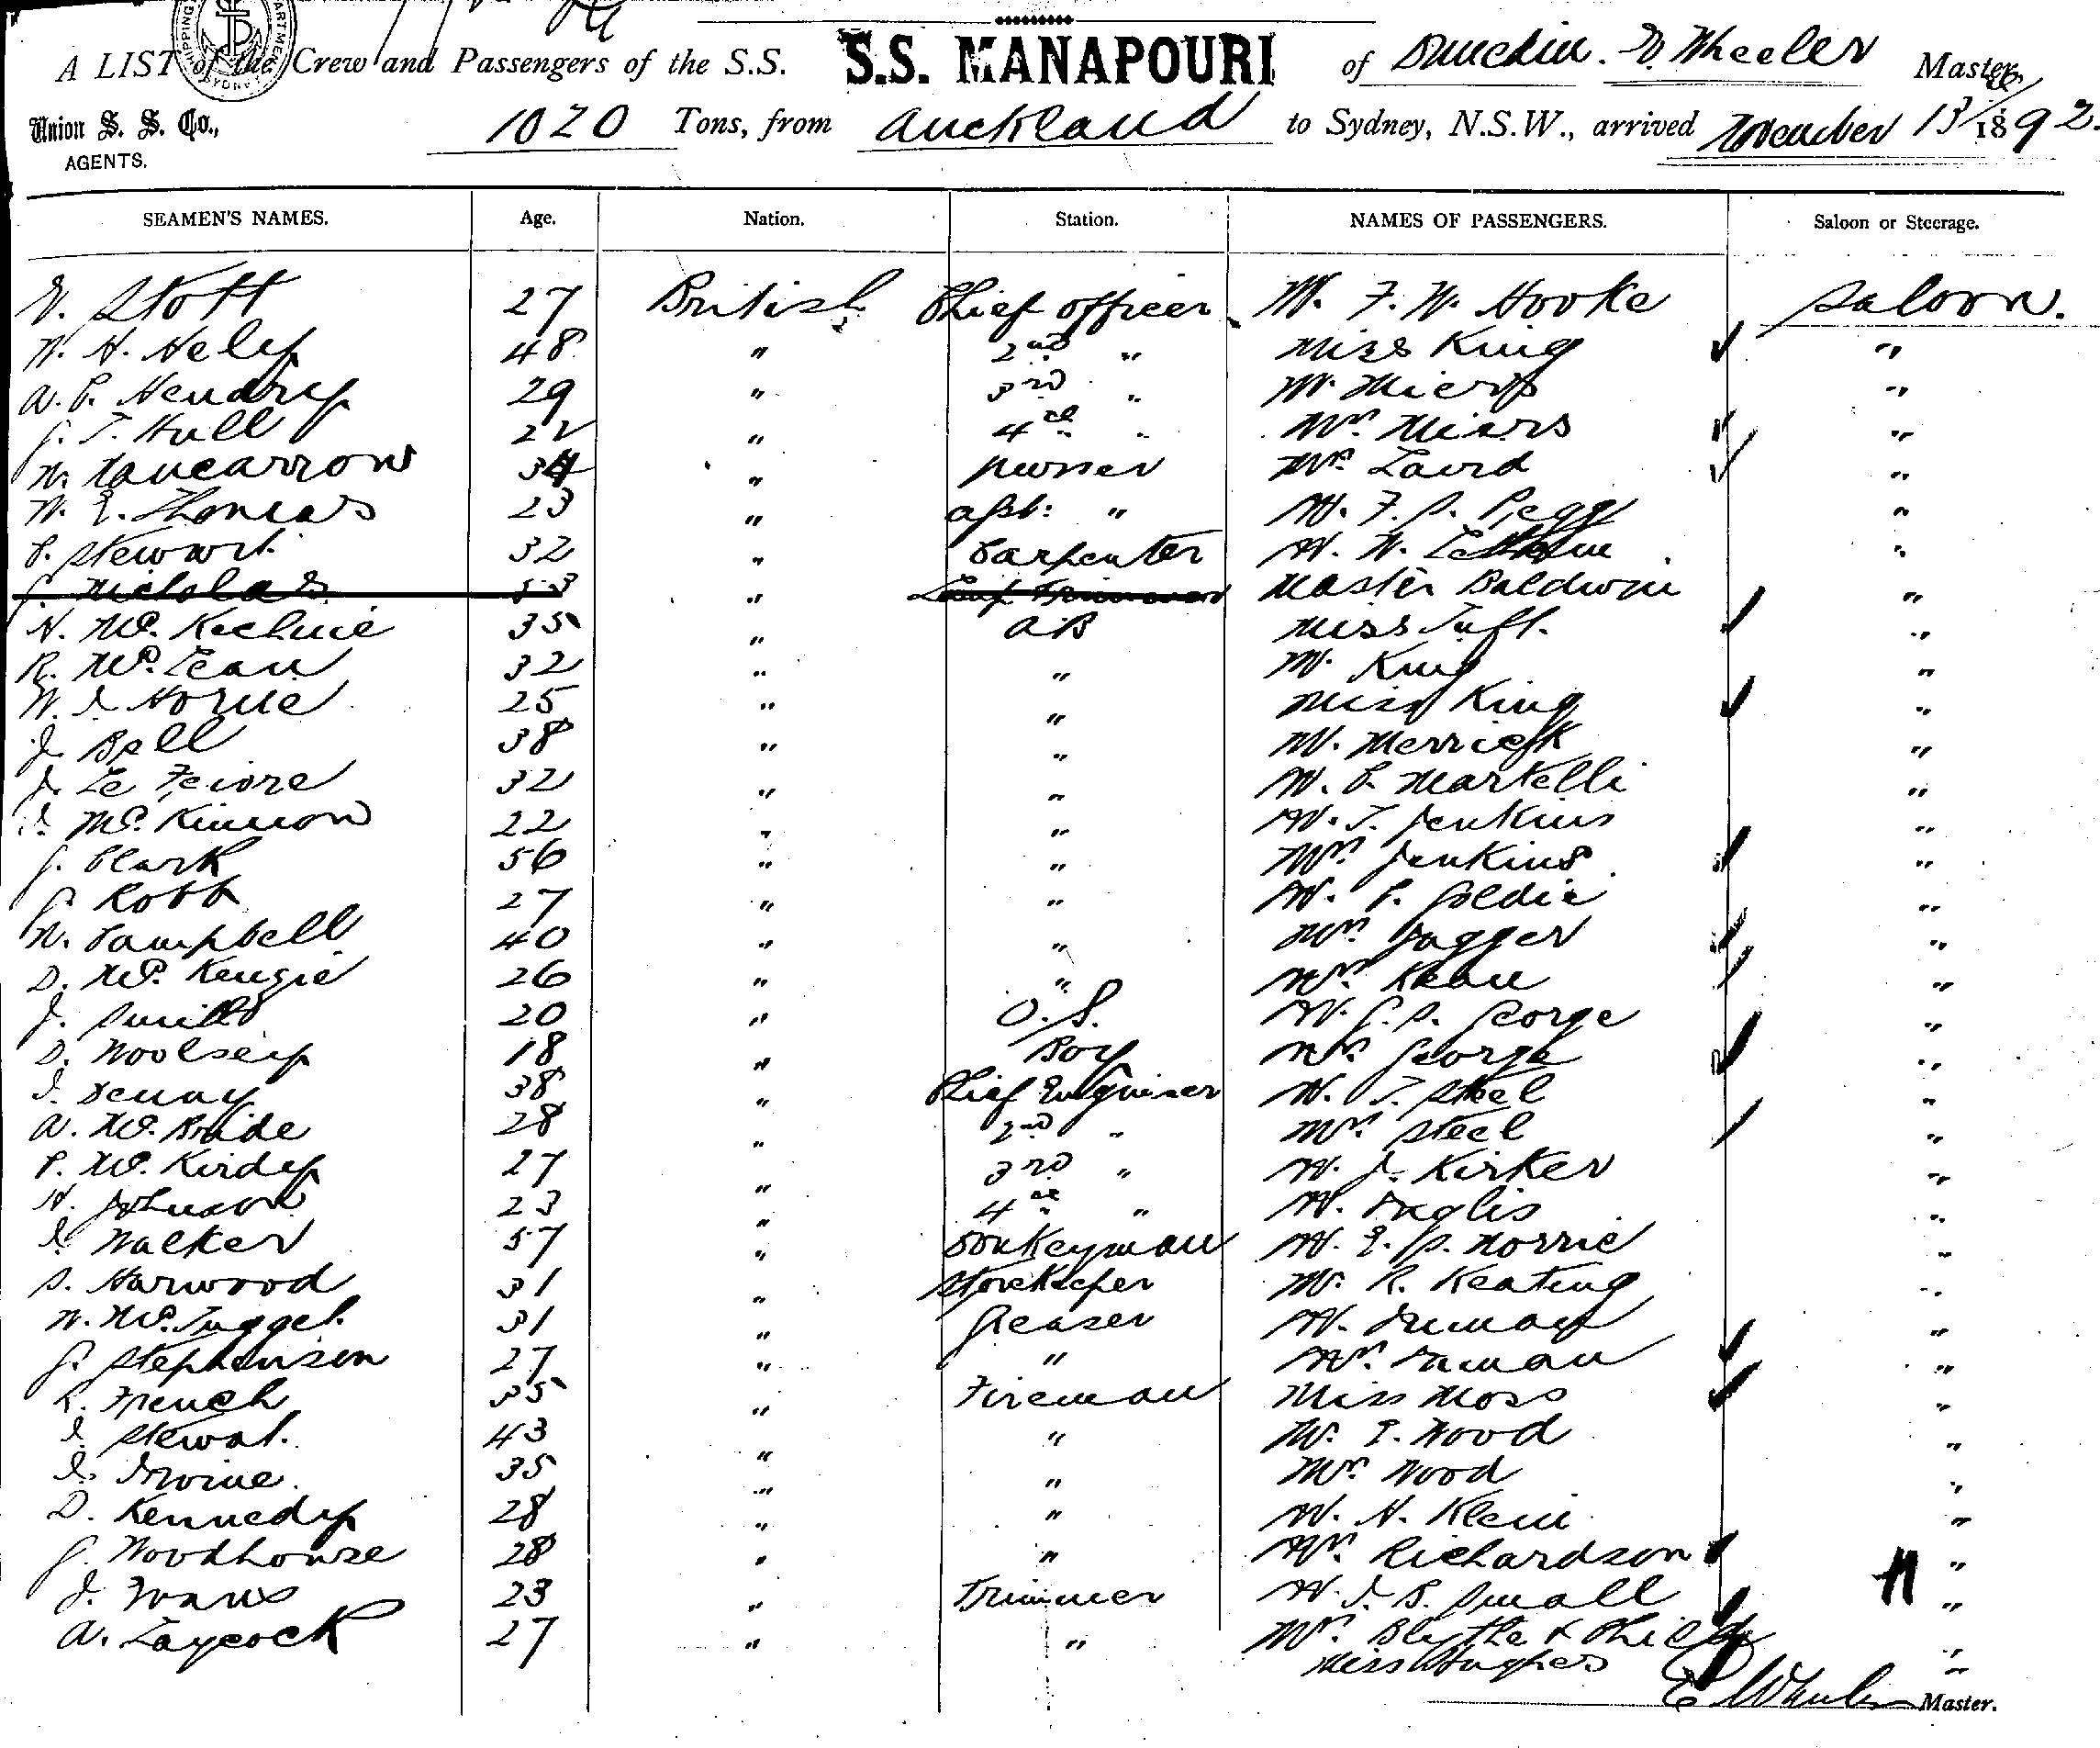 A LIST of the Crew and Passengers of the S.S. S.S. MANAPOURI of Dunedin. E. Wheeler Master
Union S. S. Co., 1020 Tons, from Auckland to Sydney, N.S.W., arrived November 13th 1892.
AGENTS.
SEAMEN'S NAMES. Age. Nation. Station. NAMES OF PASSENGERS. Saloon or Steerage.
Stott 27 British Chief Officer Mr. F. W. Hooke Saloon.
W. H. Hely 48 " 2nd " Miss King "
A. C. Hendry 29 " 3rd " Mr. Miers "
J. T. Hull 22 " 4th " Mrs. Miers "
W. Nancarrow 34 " Purser Mrs. Laird "
W. E. Thomas 23 " Asst: " Mr. F. S. Pegg "
C. Stewart. 32 " Carpenter Mr. W. "
J. Nicholas 53 " Lamp Trimmer Master Baldwin "
H. McKechnie 35 " AB Miss Tuft. "
R. McLean 32 " " Mr. King "
W. J. Horne 25 " " Miss King "
J. Bell 38 " " Mr. Merrick "
J. Le Feivre 32 " " Mr. C. Martelli "
J. McKinnon 22 " " Mr. T. Jenkins "
J. Clark 56 " " Mrs. Jenkins "
J. Robb 27 " " Mr. C. Goldie "
N. Campbell 40 " " Mrs. Jagger "
D. McKenzie 26 " " Mrs. Kean "
J. Smith 20 " O.S. Mr. G. S. George "
D. Woolsey 18 " Boy Mrs. George "
J. Denay 38 " Chief Engineer Mr. T. Steel "
A. McBride 28 " 2nd " Mrs. Steel "
P. McKirdy 27 " 3rd " Mr. J. Kirker "
H. Johnson 23 " 4th " Mr. Inglis "
J. Walker 57 " Donkeyman Mr. E. S. Norrie "
S. Harwood 31 " Storekeeper Mr. R. Keating "
N. McTaggel. 31 " Greaser Mr. "
J. Stephenson 27 " " Mrs. "
R. French 35 " Fireman Miss Moss "
J. Stewat. 43 " " Mr. E. Wood "
J. Irvine. 35 " " Mrs. Wood "
D. Kennedy 28 " " Mr. H. Klein "
J. Woodhouse 28 " " Mrs. Richardson "
J. Evans 23 " Trimmer Mr. J. B. Small "
A. Laycock 27 " " Mrs. Blythe & Child "
Miss Hughes "
E Wheeler Master.